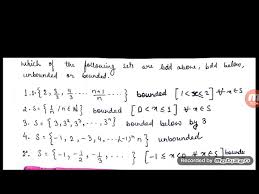 which of the following sets are bdd above, bdd below,
unbounded or bounded.
1. S={2, 3/2, 4/3 ... n+1/n} bounded [1<x≤2] ∀ x∈S
2. S={1/n |n∈N} bounded [0<x≤1] ∀ x∈S
3. S={3, 3², 3³, ... 3ⁿ} bounded below by 3
4. S={-1, 2, -3, 4, ...(-1)ⁿ n} unbounded
S={-1, -1/2, -1/3, ...} [-1≤x<0 ∀ x∈S]
RECORDED BY